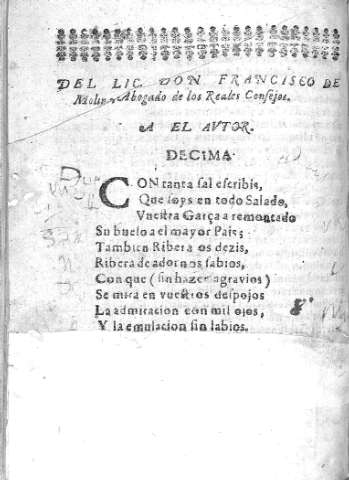 DEL LIC. DON FRANCISCO DE
Molina Abogado de los Reales Consejos.
A EL AVTOR.
DECIMA.
CON tanta sal escribis,
Que soys en todo Salado,
Vuestra Garça a remontado
Su buelo a el mayor Pais;
Tambien Ribera os dezis,
Ribera de adornos sabios,
Con que (sin hazer agravios)
Se mira en vuestros despojos
La admiracion con mil ojos,
Y la emulacion sin labios.